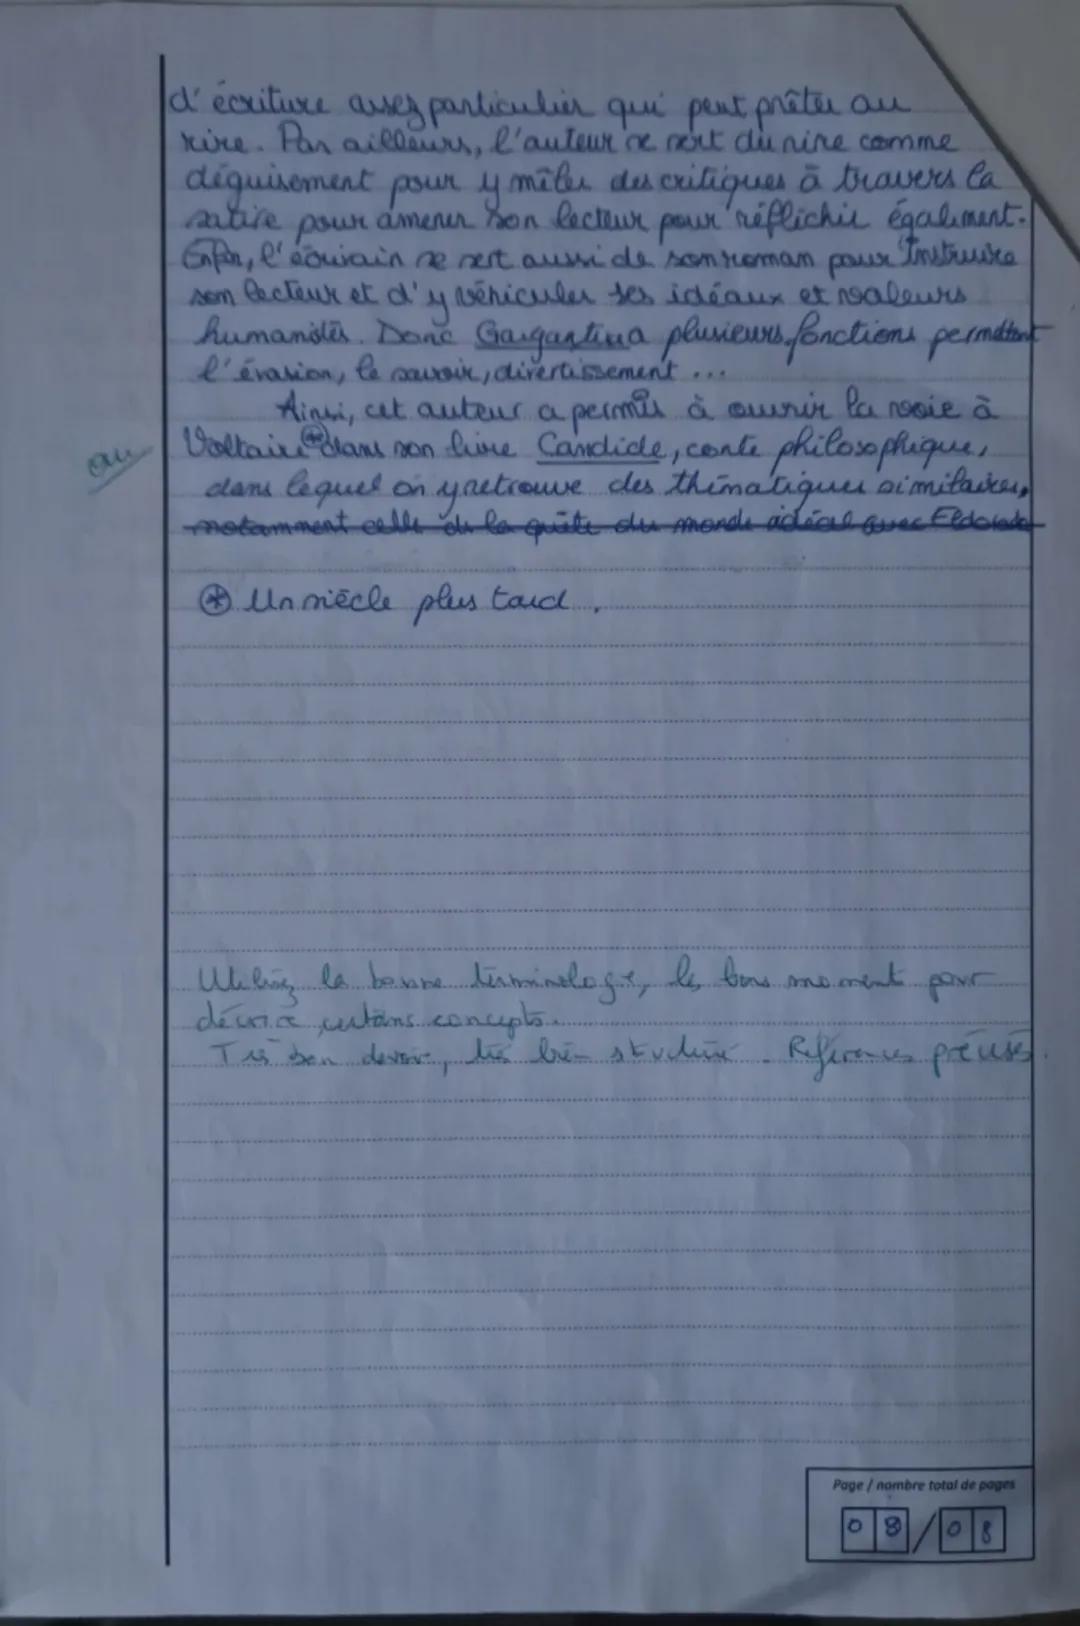 d'écriture assez particulier qui peut prêter au
rire. Par ailleurs, l'auteur se sert du rire comme
déguisement pour y mêler des critiques à travers la
satire pour amener son lecteur pour réflichir également.
Enfin, l'écrivain se sert aussi de son roman pour instruire
son lecteur et d'y véhiculer ses idéaux et valeurs
humanistes. Donc Gargantua plusieurs fonctions permettant
l'évasion, le savoir, divertissement ...
Ainsi, cet auteur a permis à ouvrir la voie à
au
Voltaire ⊛ dans son livre Candide, conte philosophique,
dans lequel on y retrouve des thématiques similaires,
notamment celle de la quête du monde idéal avec Eldorado
⊛ Un siècle plus tard.
Utilisez la bonne terminologie, le bon moment pour
décrire certains concepts.
Très bon devoir, très bien structuré. Références précises.
Page / nombre total de pages
08/08